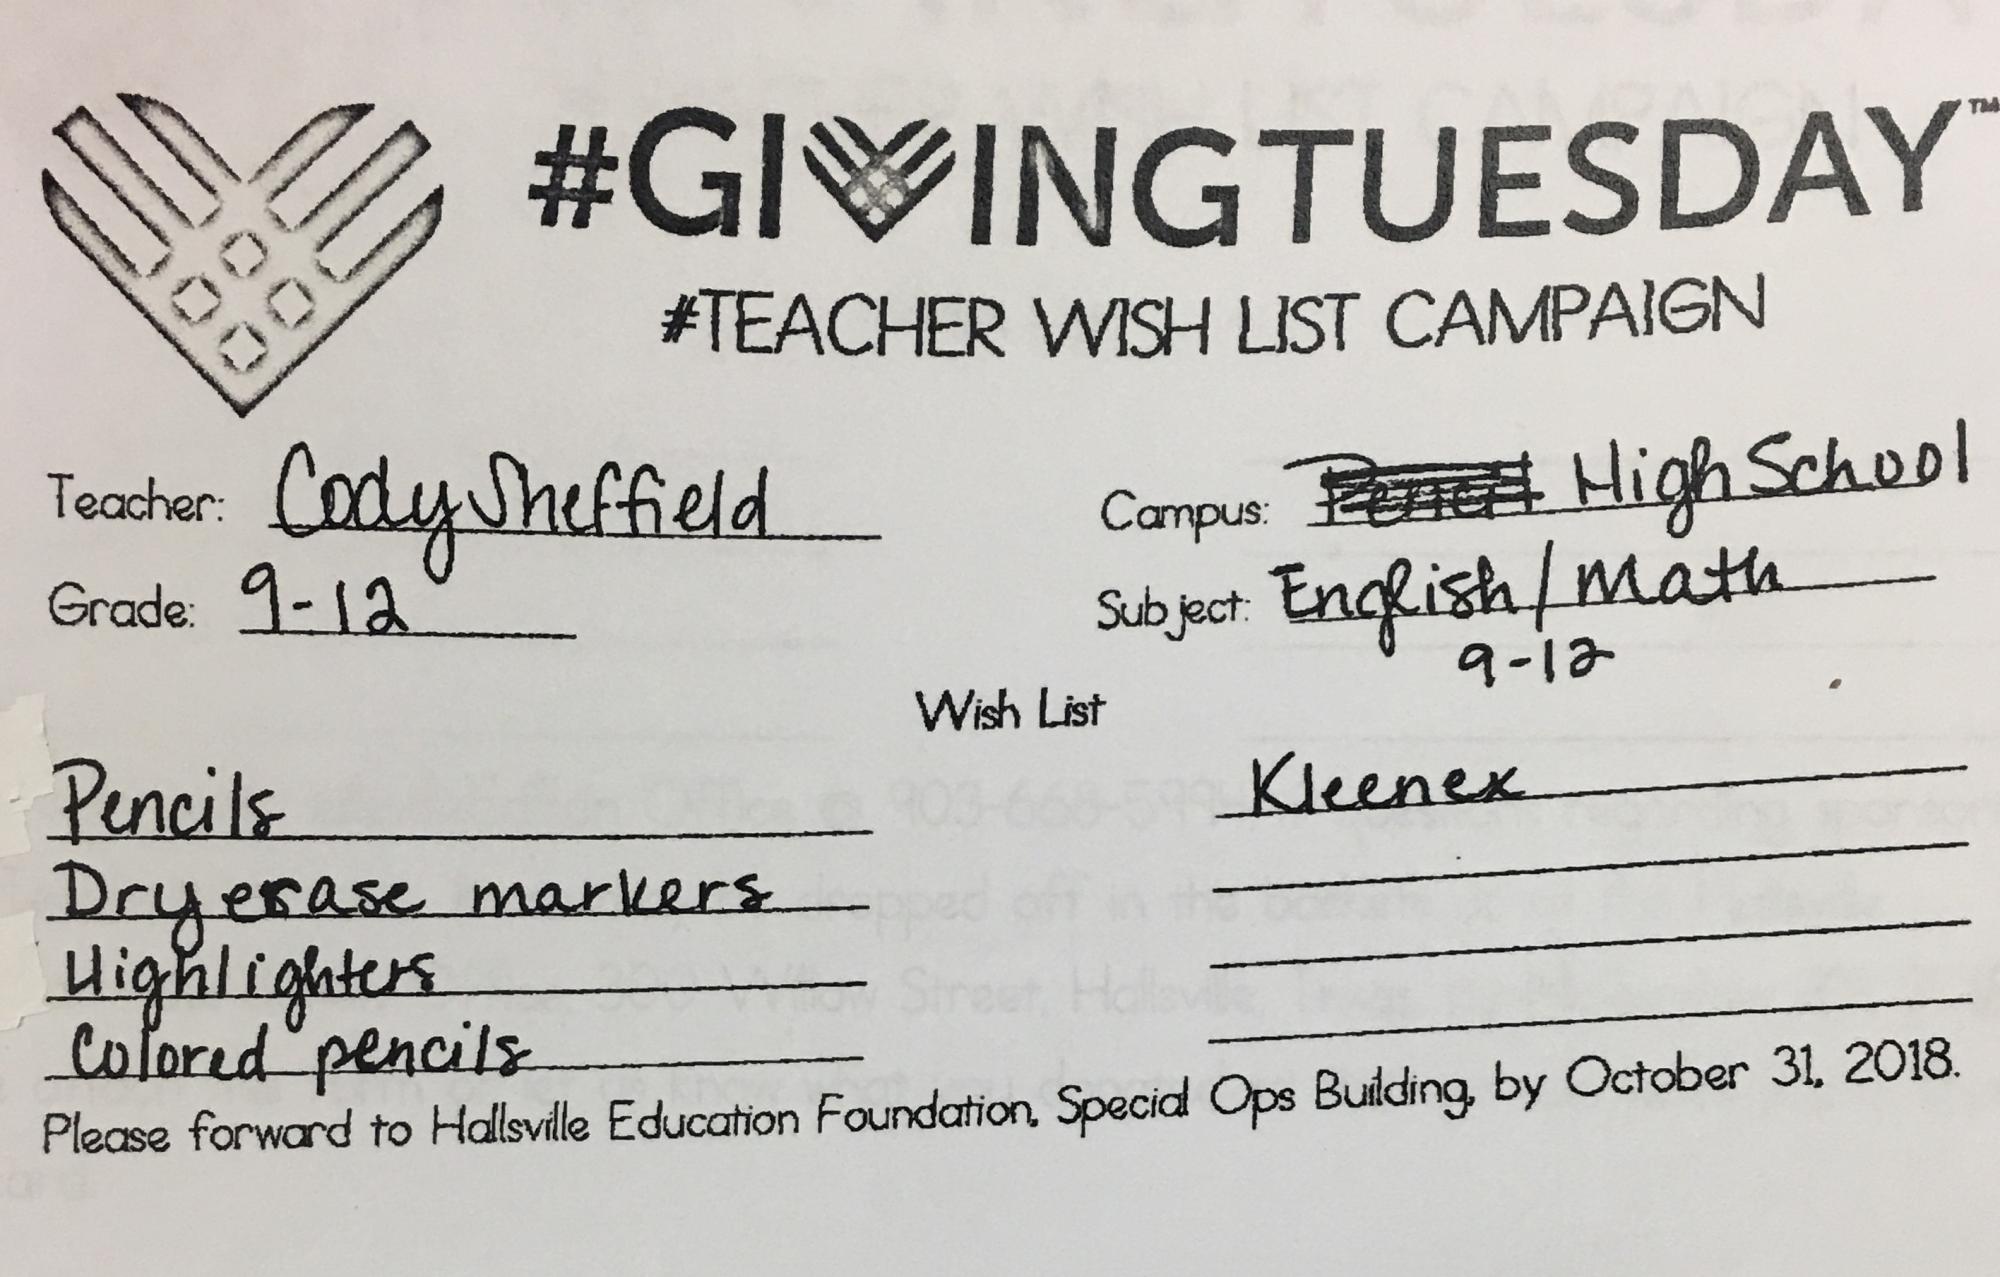 #GIVINGTUESDAY™
#TEACHER WISH LIST CAMPAIGN
Teacher: Cody Sheffield
Campus: High School
Grade: 9-12
Subject: English/Math
9-12
Wish List
Pencils
Kleenex
Dry erase markers
Highlighters
Colored pencils
Please forward to Hallsville Education Foundation, Special Ops Building, by October 31, 2018.